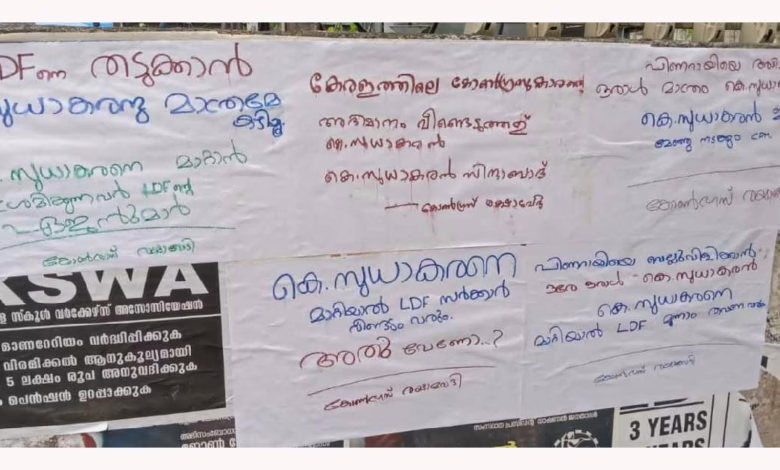 LDF നെ തടുക്കാൻ
സുധാകരനു മാത്രമേ
കഴിയൂ
കെ. സുധാകരനെ മാറ്റാൻ
ശ്രമിക്കുന്നവർ LDF ന്റെ
ഏജന്റുമാർ
കോൺഗ്രസ് രക്ഷാവേദി
കേരളത്തിലെ കോൺഗ്രസുകാരന്റെ
അഭിമാനം വീണ്ടെടുത്തത്
കെ. സുധാകരൻ
കെ. സുധാകരൻ സിന്ദാബാദ്
കോൺഗ്രസ് രക്ഷാവേദി
പിണറായിയെ
ഒരാൾ മാത്രം കെ. സുധാ
കെ. സുധാകരൻ
കോൺഗ്രസ്
കെ. സുധാകരനെ
മാറ്റിയാൽ LDF സർക്കാർ
വീണ്ടും വരും.
അത് വേണോ..?
കോൺഗ്രസ് രക്ഷാവേദി
പിണറായിയെ വെല്ലുവിളിക്കാൻ
ഒരേ ഒരാൾ കെ. സുധാകരൻ
കെ. സുധാകരനെ
മാറ്റിയാൽ LDF മൂന്നാം തവണ
കോൺഗ്രസ് രക്ഷാവേദി
KSWA
ള സ്കൂൾ വർക്കേഴ്സ് അസോസിയേഷൻ
ഓണറേറിയം വർദ്ധിപ്പിക്കുക
വിരമിക്കൽ ആനുകൂല്യമായി
5 ലക്ഷം രൂപ അനുവദിക്കുക
പെൻഷൻ ഉറപ്പാക്കുക
3 YEARS
YEARS